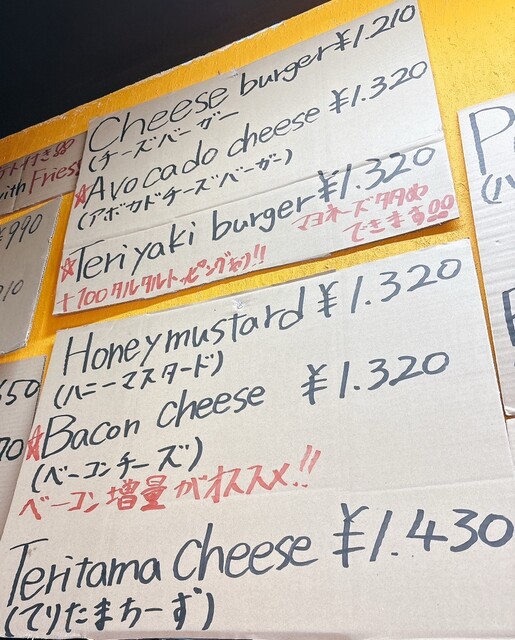 Cheese burger ¥1.210
(チーズバーガー)
☆Avocado cheese ¥1.320
(アボカドチーズバーガー)
☆Teriyaki burger ¥1.320
+100タルタルトッピング
マヨネーズ
できます
Honeymustard ¥1.320
(ハニーマスタード)
☆Bacon cheese ¥1.320
(ベーコンチーズ)
ベーコン増量がオススメ!!
Teritama cheese ¥1.430
(てりたまちーず)
with Fries
¥990